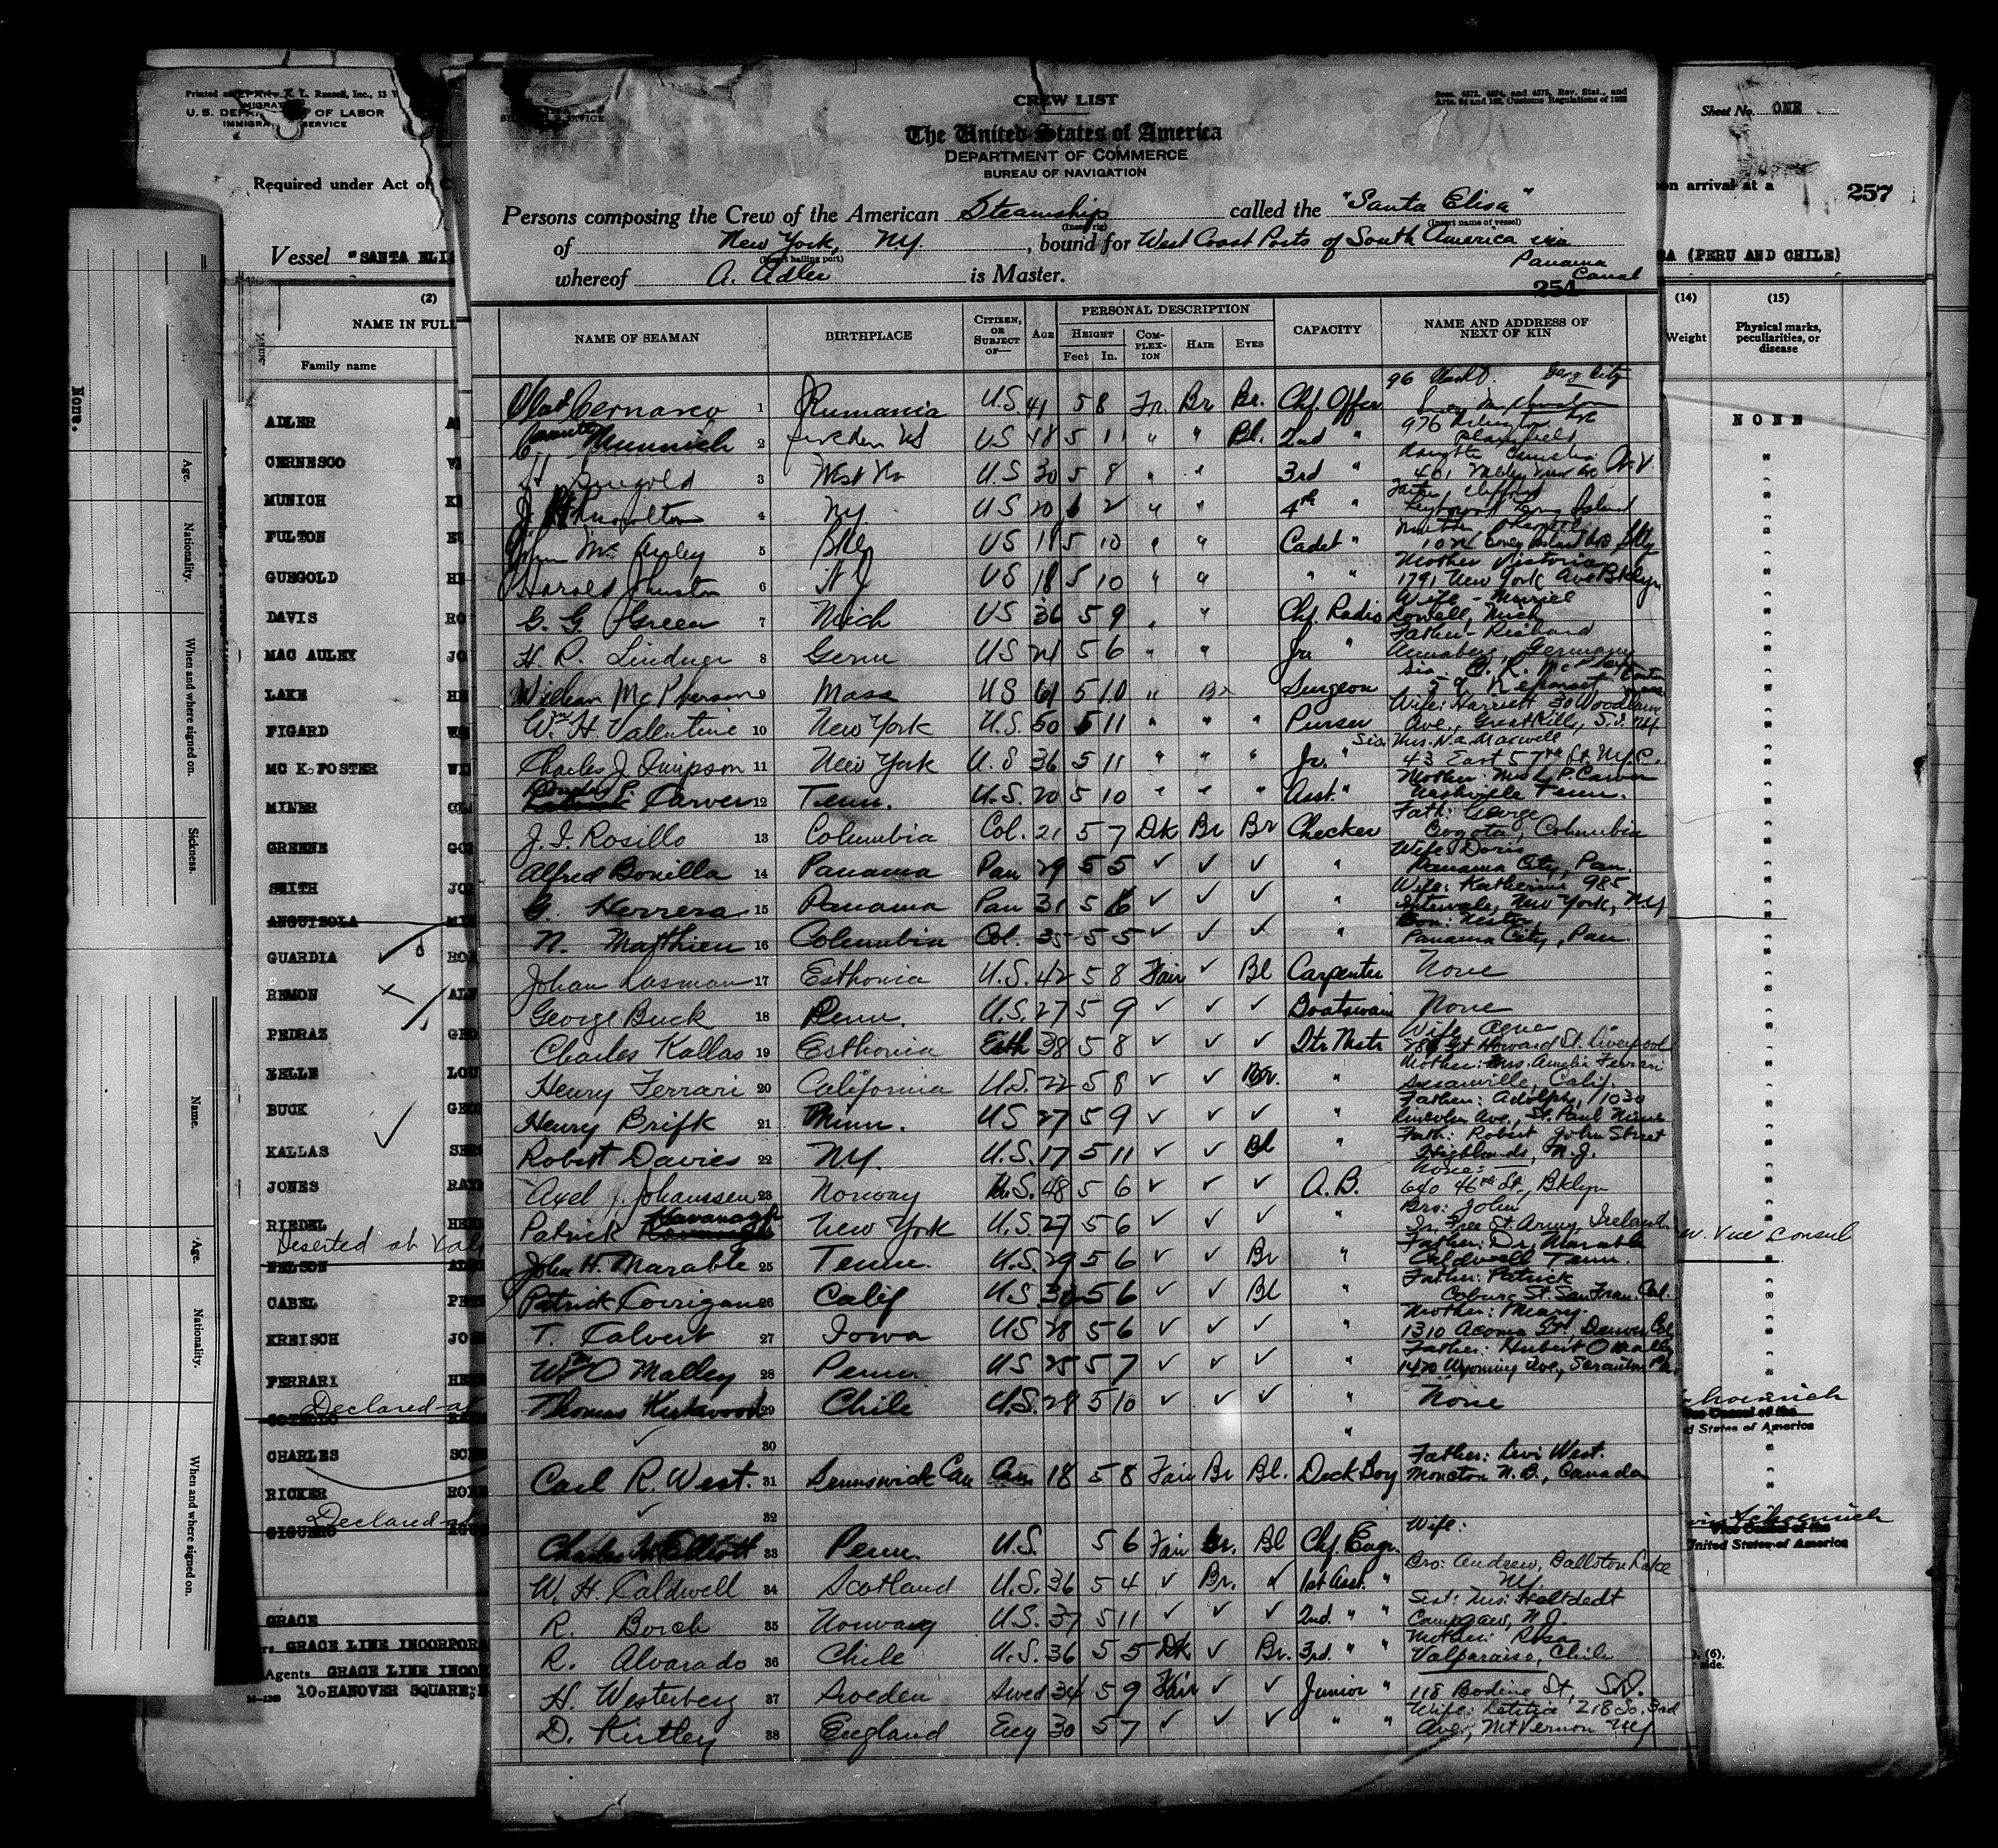 CREW LIST
Secs. 4573, 4574, and 4575, Rev. Stat., and
Arts. 84 and 163, Customs Regulations of 1923
The United States of America
DEPARTMENT OF COMMERCE
BUREAU OF NAVIGATION
Persons composing the Crew of the American Steamship called the "Santa Elisa"
(Insert rig) (Insert name of vessel)
of New York, N.Y. , bound for West Coast Ports of South America via
(Insert hailing port) Panama
whereof A. Adler is Master. Canal
254
NAME OF SEAMAN BIRTHPLACE CITIZEN, OR SUBJECT OF— AGE PERSONAL DESCRIPTION CAPACITY NAME AND ADDRESS OF NEXT OF KIN
HEIGHT Feet In. COMPLEXION HAIR EYES
1 Rumania U.S. 41 5 8 Fr. Br Br. Chf. Offcr
Munnich 2 US 48 5 11 " " Bl. 2nd " 976 Plainfield
3 West Va U.S 30 5 8 " " 3rd "
4 NY US 20 6 2 " " 4th " Long Island
John Mc Auley 5 Bkly US 18 5 10 " " Cadet "
Harold Johnston 6 N J US 18 5 10 " " " " Mother Victoria 1791 New York Ave Bklyn
G. G. Green 7 Mich US 36 5 9 " " Chf. Radio Wife - Muriel Lowell, Mich
H. R. 8 Germ US 21 5 6 " " Jr. " Father - Richard Annaberg, Germany
William McPherson 9 Mass US 61 5 10 " Br Surgeon
Wm H. Valentine 10 New York U.S. 50 5 11 " " " Purser Wife: Harriett 30 Woodlawn Ave., Great Kills, S.I. NY.
Charles J. Simpson 11 New York U.S 36 5 11 " " " Jr. " Sis: Mrs. N.A. Maxwell 43 East 57th St. N.Y.C.
Carver 12 Tenn. U.S. 20 5 10 " " " Asst. " Mother Mrs L.P. Carver Nashville Tenn.
J. I. Rosillo 13 Columbia Col. 21 5 7 Dk Br Br Checker Fath: George Bogota, Columbia
Alfred Bonilla 14 Panama Pan 29 5 5 ✓ ✓ ✓ " Wife: Doris Panama City, Pan.
G. Herrera 15 Panama Pan 31 5 6 ✓ ✓ ✓ " Wife: Katherine 985 Intervale, New York, N.Y
N. Matthieu 16 Columbia Col. 35 5 5 ✓ ✓ ✓ " Son: Nestor Panama City, Pan.
Johan Lasman 17 Esthonia U.S. 42 5 8 Fair ✓ Bl Carpenter None
George Buck 18 Penn. U.S. 27 5 9 ✓ ✓ ✓ Boatswain None
Charles Kallas 19 Esthonia Esth 38 5 8 ✓ ✓ ✓ Qtr Mstr Wife Agnes Gt Howard St. Liverpool
Henry Ferrari 20 California U.S. 22 5 8 ✓ ✓ Br. " Mother: Mrs. Amelia Ferrari Susanville, Calif.
Henry Brifk 21 Minn. US 27 5 9 ✓ ✓ ✓ " Father: Adolph, 1030 Lincoln Ave., St. Paul Minn
Robert Davies 22 NY. U.S. 17 5 11 ✓ ✓ Bl " Fath: Robert John Street Highlands, N.J.
Axel J. Johanssen 23 Norway U.S. 48 5 6 ✓ ✓ ✓ A.B. None: 640 46th St., Bklyn
Patrick Kavanagh New York U.S. 27 5 6 ✓ ✓ ✓ " Bro: John Ir. Free St. Army, Ireland
John H. Marable 25 Tenn. U.S. 29 5 6 ✓ ✓ Br " Father: Dr. Marable Caldwell Tenn.
Patrick Corrigan 26 Calif US 30 5 6 ✓ ✓ Bl " Father: Patrick Coburg St. San Fran. Cal.
T. Calvert 27 Iowa US 28 5 6 ✓ ✓ ✓ " Mother: Mary. 1310 Acoma St., Denver Col
Wm O Malley 28 Penn. US 25 5 7 ✓ ✓ ✓ " Father: Hubert O Malley 1420 Wyoming Ave., Scranton Pa
Thomas Kirkwood 29 Chile U.S. 28 5 10 ✓ ✓ ✓ " None
✓ 30 "
Carl R. West. 31 Brunswick Can Can 18 5 8 Fair Br Bl. Deck Boy Father: Levi West. Moncton N.B., Canada
✓ 32
Charles W Elliott 33 Penn. U.S. 5 6 Fair Br. Bl Chf. Engr. Wife:
W. H. Caldwell 34 Scotland U.S. 36 5 4 ✓ Br. ✓ 1st Asst. " Bro: Andrew, Ballston Lake NY.
R. Borch 35 Norway U.S. 37 5 11 ✓ ✓ ✓ 2nd. " " Sist: Mrs. Holtdedt Campgaw, N.J.
R. Alvarado 36 Chile U.S. 36 5 5 Dk ✓ Br. 3rd. " " Mother: Rosa Valparaiso, Chile
H. Westerberg 37 Sweden Swed 34 5 9 Fair ✓ ✓ Junior " 118 Bodine St, S.I.
D. Kirtley 38 England Eng 30 5 7 ✓ ✓ ✓ " " Wife: Letitia 218 So. 3rd Ave., Mt Vernon NY
U.S. DEPA OF LABOR
IMMIGRA SERVICE
Required under Act of C
Vessel "SANTA ELI
(2)
NAME IN FULL
Family name
ADLER
CERNESCO
MUNICH
FULTON
GUEGOLD
DAVIS
MAC AULEY
LAKE
FIGARD
MC K FOSTER
MINER
GREENE
SMITH
ANGUIZOLA
GUARDIA
REMON
PEDRAZ
KELLE
BUCK
KALLAS
JONES
RIEDEL
Deserted at Val
NELSON
CABEL
KREISCH
FERRARI
Declared at
CHARLES
RICKER
Declared at
GRACE
GRACE LINE INCORPOR
Agents GRACE LINE INCOR
10 HANOVER SQUARE,
None.
Age.
Nationality.
When and where signed on.
Sickness.
Name.
Age.
Nationality.
When and where signed on.
Sheet No. ONE
on arrival at a
257
RA (PERU AND CHILE)
(14) (15)
Weight Physical marks, peculiarities, or disease
NONE
Vice Consul
Vice Consul of the
d States of America
Schoenrich
Vice Consul of the
United States of America